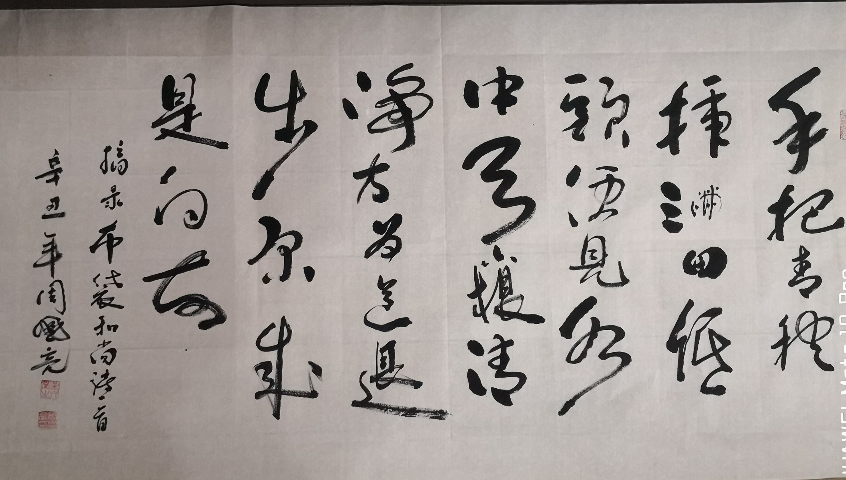 手把青秧
插满田低
頭便見水
中天六根清
淨方为道退
步原来
是向前
摘录布袋和尚诗一首
辛丑年周亮
HUAWEI Mate 10 Pro